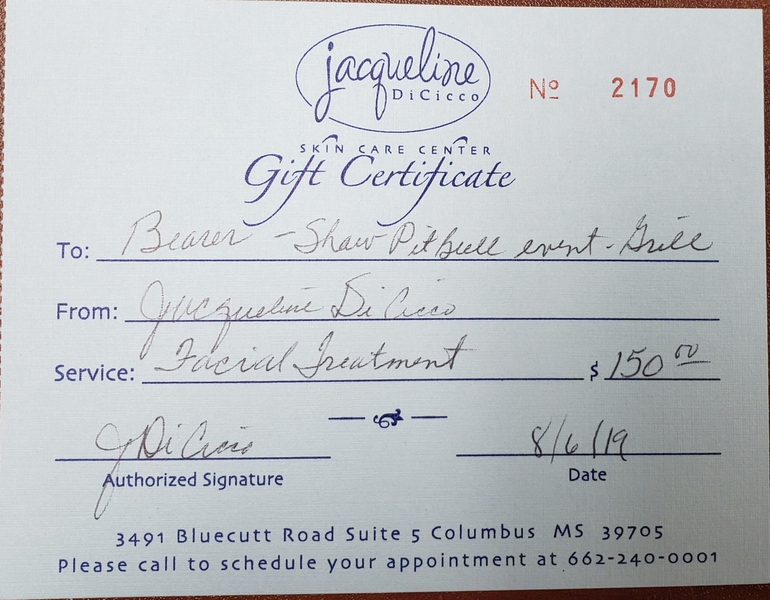 jacqueline
DiCicco
Nº 2170
SKIN CARE CENTER
Gift Certificate
To: Bearer - Shaw Pitbull event - Grill
From: Jacqueline DiCicco
Service: Facial Treatment $ 150 00
J DiCicco 8/6/19
Authorized Signature Date
3491 Bluecutt Road Suite 5 Columbus MS 39705
Please call to schedule your appointment at 662-240-0001